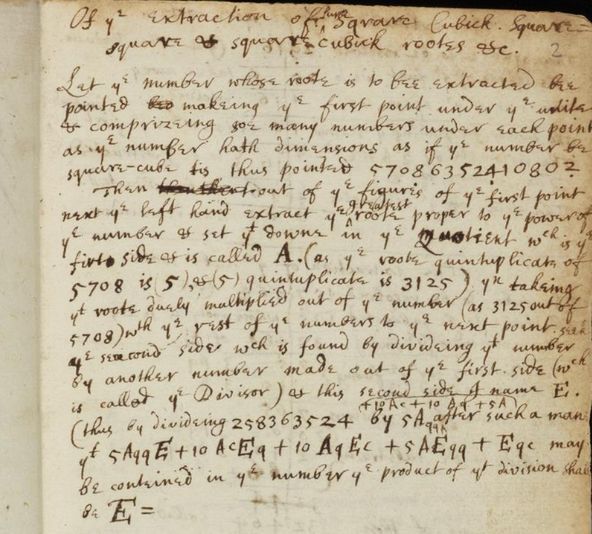 Of yᵉ Extraction of pure Square Cubick. Square-
square & square cubick rootes &c. 2
Let yᵉ number whose roote is to bee extracted bee
pointed makeing yᵉ first point under yᵉ unite
& comprizeing soe many numbers under each point
as yᵉ number hath dimensions as if yᵉ number be
square-cube tis thus pointed 57086352410802
Then out of yᵉ figures of yᵉ first point
next yᵉ left hand extract yᵉ greatest roote proper to yᵉ power of
yᵉ number & set yᵗ downe in yᵉ Quotient wᶜʰ is yᵉ
first side & is called A. (as yᵉ roote quintuplicate of
5708 is (5) , & (5) quintuplicate is 3125) yⁿ takeing
yᵗ roote duely multiplied out of yᵉ number (as 3125 out of
5708) wᵗʰ yᵉ rest of yᵉ numbers to yᵉ next point seek
yᵉ second side wᶜʰ is found by divideing yᵗ number
by another number made out of yᵉ first side (wᶜʰ
is called yᵉ Divisor) & this second side I name E.
(thus by divideing 258363524 by 5Aqq +10Ac +10Aq +5A) after such a man
yᵗ 5AqqE + 10AcEq + 10AqEc + 5AEqq + Eqc may
be conteined in yᵉ number yᵉ product of yᵗ division shall
be E =